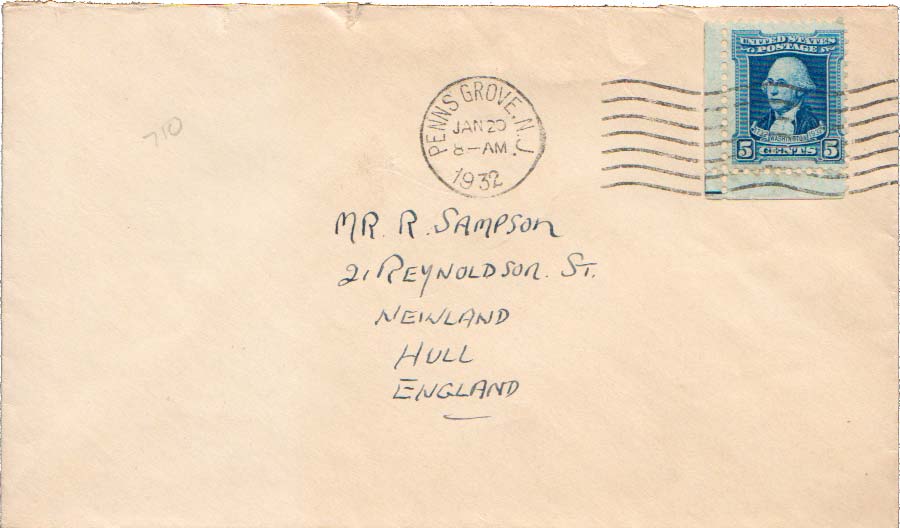 UNITED STATES
POSTAGE
WASHINGTON
5 CENTS 5
PENNS GROVE, N.J.
JAN 20
8-AM
1932
710
MR. R. SAMPSON
21 REYNOLDSON. ST.
NEWLAND
HULL
ENGLAND